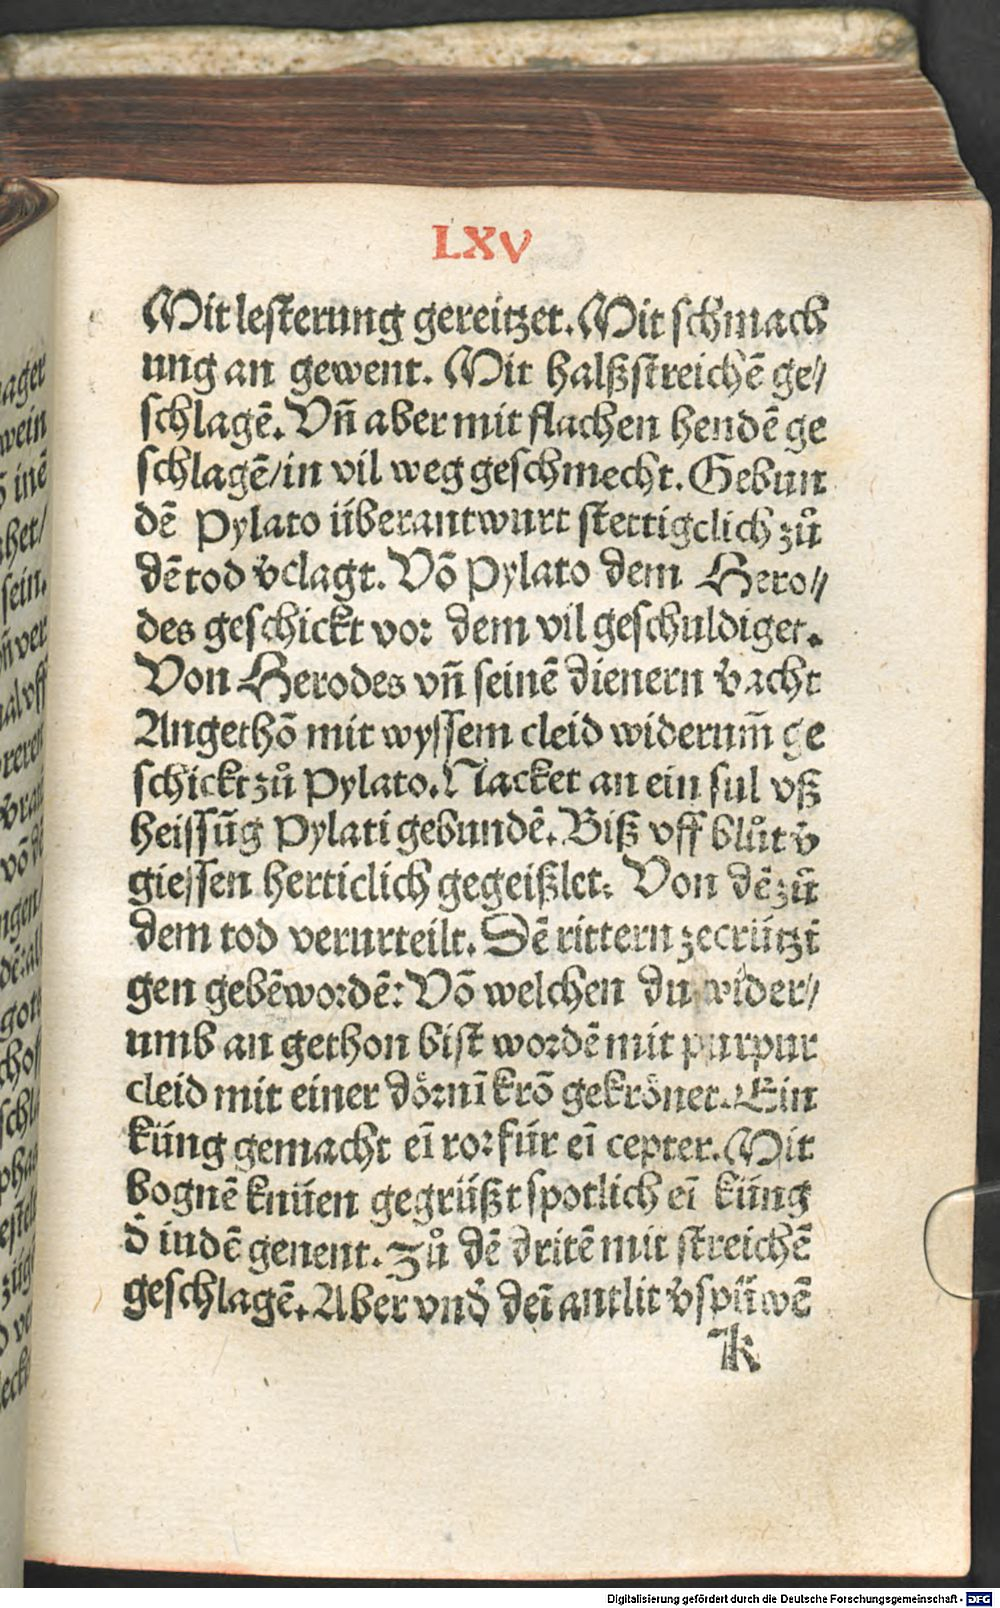 LXV
Mit lesterung gereitzet. Mit schmach
ung an gewent. Mit halßstreichē ge//
schlagē. Vn̄ aber mit flachen hendē ge
schlagē/in vil weg geschmecht. Gebun
dē Pylato überantwurt stettigclich zů
dē tod v̄clagt. Vō Pylato dem Hero//
des geschickt vor dem vil geschuldiget.
Von Herodes vn̄ seinē dienern v̄acht
Angethō mit wyssem cleid widerum̄ ge
schickt zů Pylato. Nacket an ein sul vß
heissūg Pylati gebundē. Biß vff blůt v̄
giessen herticlich gegeißlet: Von dē zů
dem tod verurteilt. Dē rittern ze crützī
gen gebē wordē: Vō welchen du wider//
umb an gethon bist wordē mit purpur
cleid mit einer dörnī krō gekrönet. Ein
küng gemacht eī ror für eī cepter. Mit
bognē knüen gegrüßt spotlich eī küng
d̄ indē genent. Zů dē dritē mit streichē
geschlagē. Aber vnd̄ deī antlit v̄spüwē
k
ager
wein
inē
het/
sein.
n̄ ver
al vff
Digitalisierung gefördert durch die Deutsche Forschungsgemeinschaft - DFG